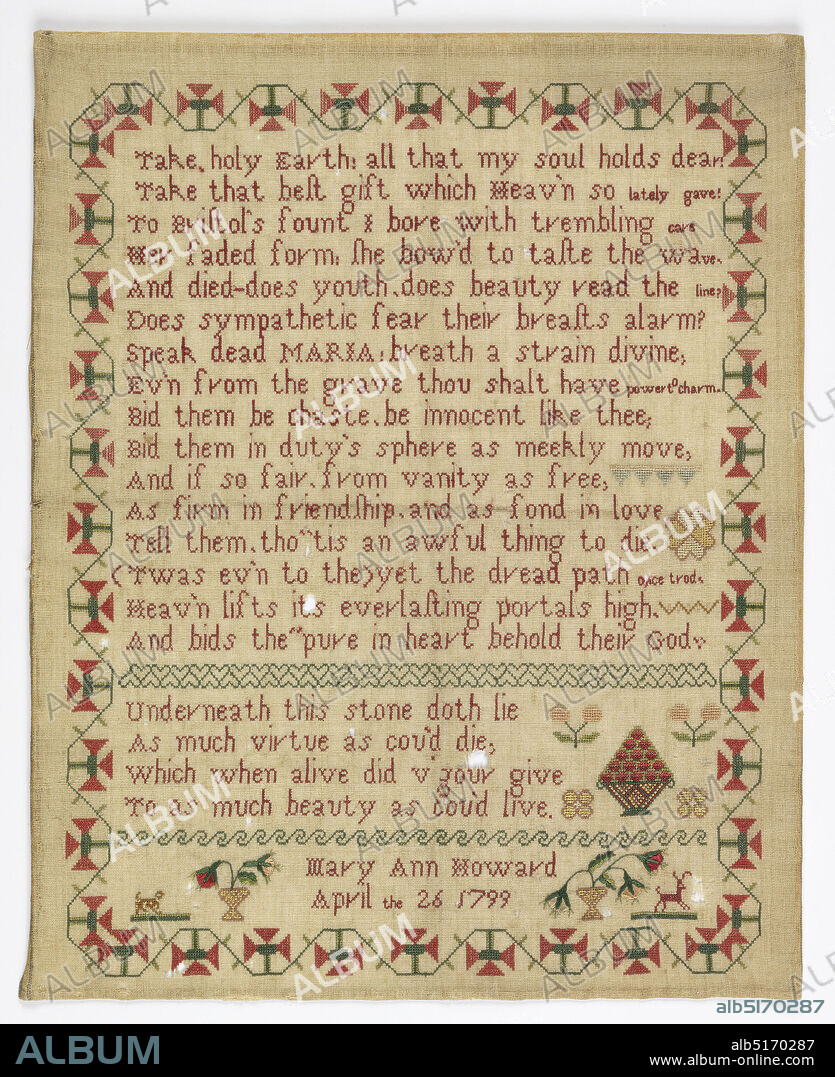 Take, holy Earth! all that my soul holds dear:
Take that beſt gift which Heav'n so lately gave!
To Briſtol's fount I bore with trembling care
Her faded form: ſhe bow'd to taſte the wave.
And died-does youth, does beauty read the line?
Does sympathetic fear their breaſts alarm?
Speak dead MARIA; breath a strain divine;
Ev'n from the grave thou shalt have power to charm.
Bid them be chaste, be innocent like thee;
Bid them in duty's sphere as meekly move;
And if so fair, from vanity as free;
As firm in friendſhip, and as fond in love
Tell them, tho' 'tis an awful thing to die,
('Twas ev'n to the) yet the dread path once trod,
Heav'n lifts its everlaſting portals high,
And bids the "pure in heart behold their God"
Underneath this stone doth lie
As much virtue as cou'd die;
Which when alive did vigour give
To as much beauty as cou'd live.
Mary Ann Howard
April the 26 1799
ALBUM
alb5170287
ALBUM
alb5170287
www.album-online.com